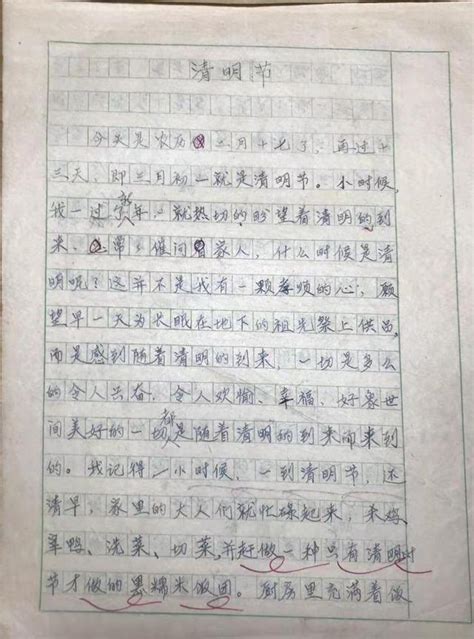 清明节
今天是农历二月十七了，再过十
三天，即三月初一就是清明节。小时候，
我一过了年，就热切的盼望着清明的到
来、常催问家人，什么时候是清
明呢？这并不是我有一颗孝顺的心，愿
望早一天为长眠在地下的祖先祭上供品，
而是感到随着清明的到来，一切是多么
的令人兴奋，令人欢愉、幸福、好象世
间美好的一切都是随着清明的到来而来到
的。我记得小时候，一到清明节，还
清早，家里的大人们就忙碌起来，杀鸡
宰鸭、洗菜、切菜，并赶做一种只有清明时
节才做的黑糯米饭团。厨房里充满着做